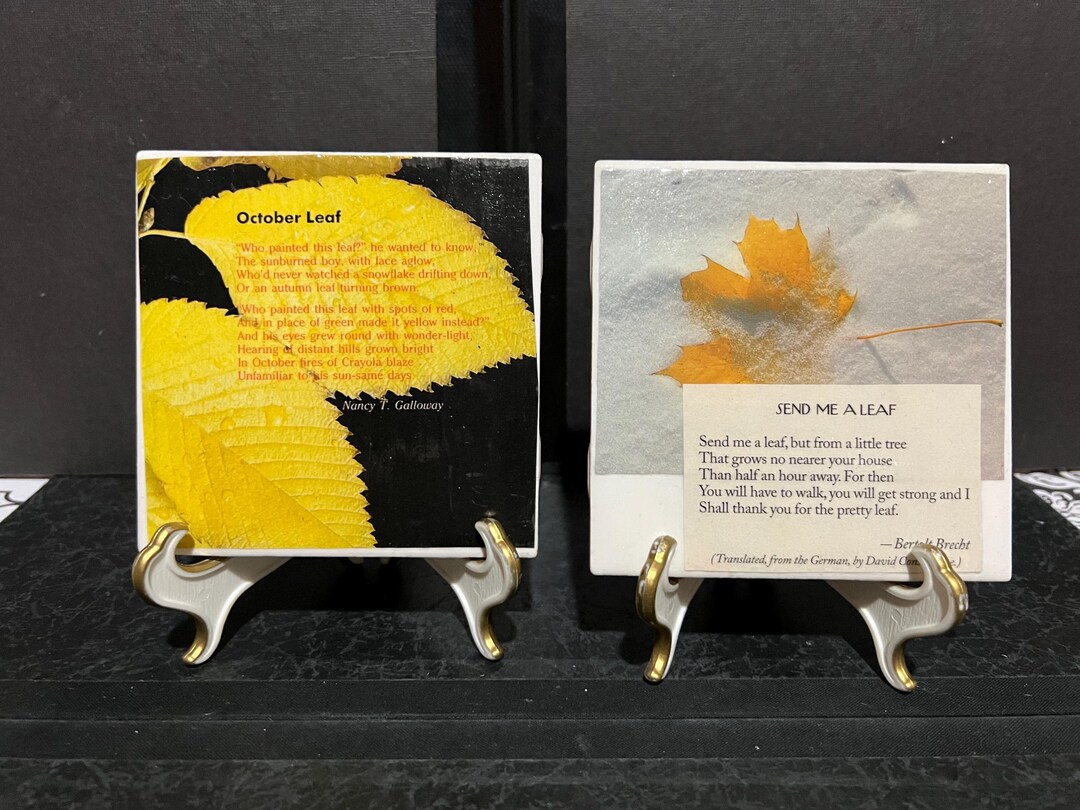 October Leaf
"Who painted this leaf?" he wanted to know,
The sunburned boy, with face aglow,
Who'd never watched a snowflake drifting down,
Or an autumn leaf turning brown.
"Who painted this leaf with spots of red,
And in place of green made it yellow instead?"
And his eyes grew round with wonder-light,
Hearing of distant hills grown bright
In October fires of Crayola blaze
Unfamiliar to his sun-same days.
Nancy T. Galloway
SEND ME A LEAF
Send me a leaf, but from a little tree
That grows no nearer your house
Than half an hour away. For then
You will have to walk, you will get strong and I
Shall thank you for the pretty leaf.
—Bertolt Brecht
(Translated, from the German, by David